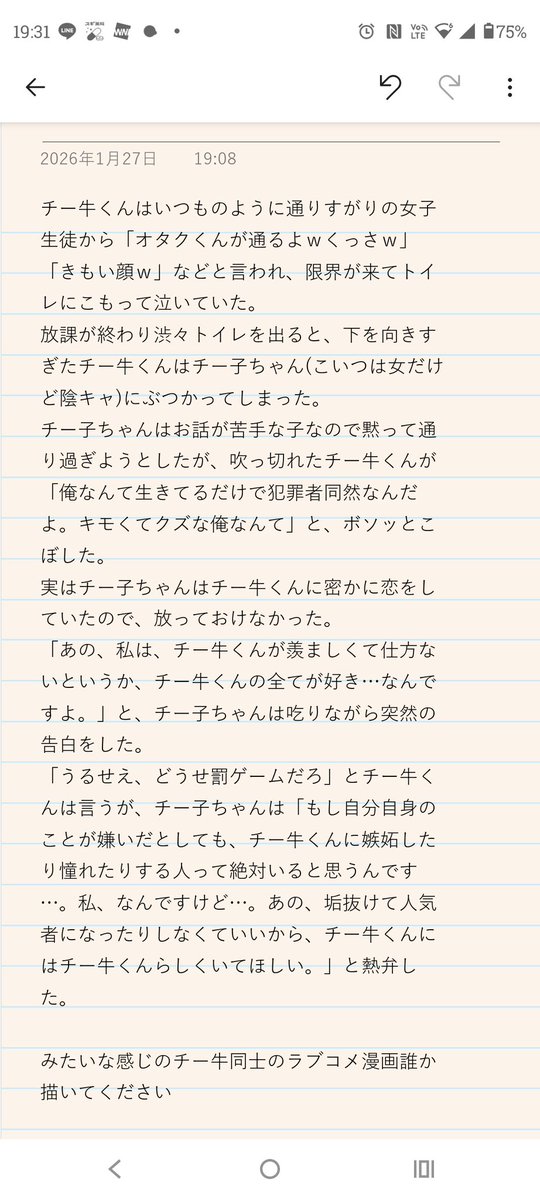 19:31
LINE
VoD
LTE
75%
2026年1月27日 19:08
チー牛くんはいつものように通りすがりの女子
生徒から「オタクくんが通るよｗくっさｗ」
「きもい顔ｗ」などと言われ、限界が来てトイ
レにこもって泣いていた。
放課が終わり渋々トイレを出ると、下を向きす
ぎたチー牛くんはチー子ちゃん(こいつは女だけ
ど陰キャ)にぶつかってしまった。
チー子ちゃんはお話が苦手な子なので黙って通
り過ぎようとしたが、吹っ切れたチー牛くんが
「俺なんて生きてるだけで犯罪者同然なんだ
よ。キモくてクズな俺なんて」と、ボソッとこ
ぼした。
実はチー子ちゃんはチー牛くんに密かに恋をし
ていたので、放っておけなかった。
「あの、私は、チー牛くんが羨ましくて仕方な
いというか、チー牛くんの全てが好き…なんで
すよ。」と、チー子ちゃんは吃りながら突然の
告白をした。
「うるせえ、どうせ罰ゲームだろ」とチー牛く
んは言うが、チー子ちゃんは「もし自分自身の
ことが嫌いだとしても、チー牛くんに嫉妬した
り憧れたりする人って絶対いると思うんです
…。私、なんですけど…。あの、垢抜けて人気
者になったりしなくていいから、チー牛くんに
はチー牛くんらしくいてほしい。」と熱弁し
た。
みたいな感じのチー牛同士のラブコメ漫画誰か
描いてください